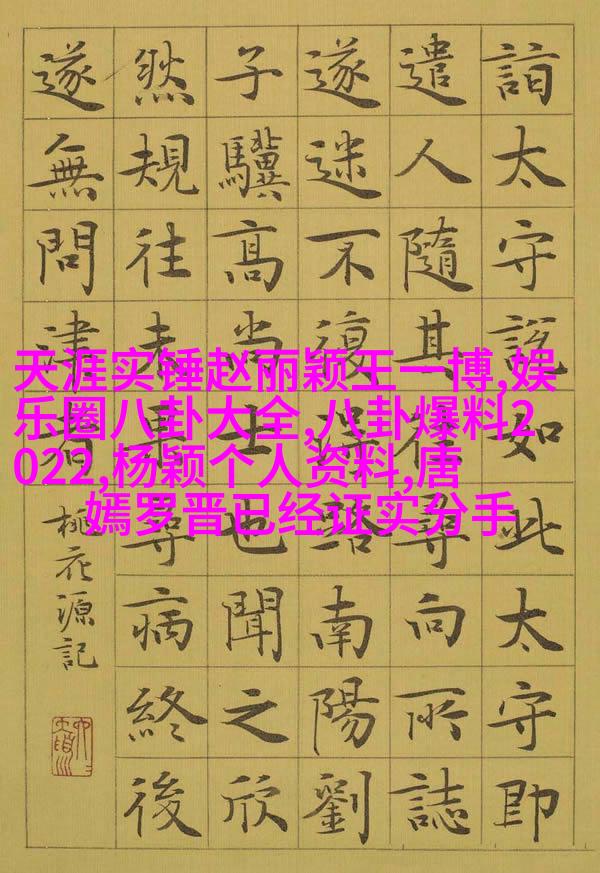 天涯实锤赵丽颖王一博,娱
乐圈八卦大全,八卦爆料2
022,杨颖个人资料,唐
嫣罗晋已经证实分手
詣太守說如此太守即
遣人隨其往尋向所誌
遂迷不復得路南陽劉
子驥高尚士也聞之欣
然規往未果尋病終後
遂無問津者
桃花源記